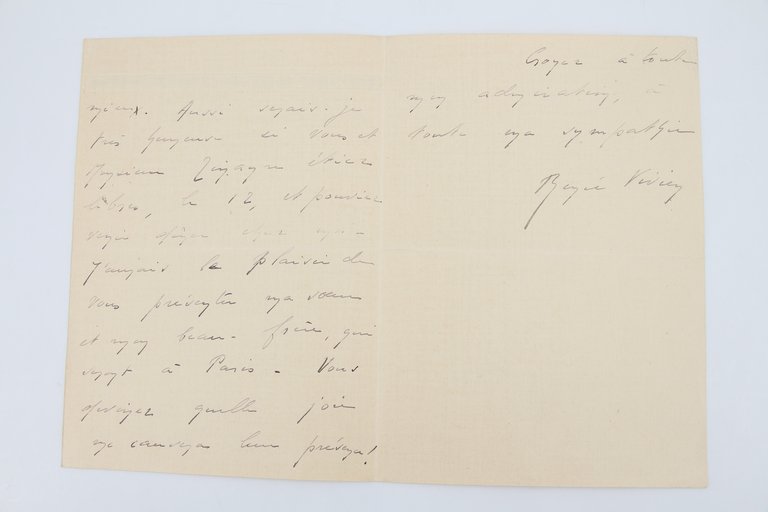 mieux. Aussi serais-je
très heureuse si Vous et
Monsieur étiez
libres, le 12, et pouviez
venir dîner chez moi -
J'aurais le plaisir de
Vous présenter ma sœur
et mon beau-frère, qui
sont à Paris - Vous
devinez quelle joie
me causera leur présence!
Croyez à toute
mon admiration, à
toute ma sympathie
Renée Vivien